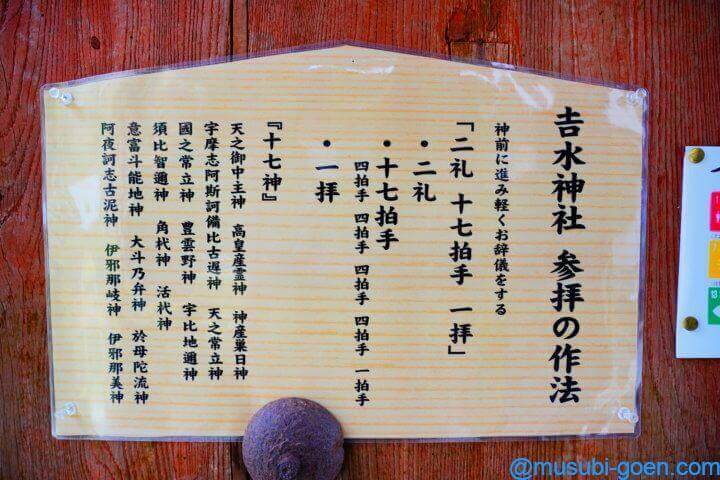 𠮷水神社 参拝の作法
神前に進み軽くお辞儀をする
「二礼 十七拍手 一拝」
・二礼
・十七拍手
四拍手 四拍手 四拍手 四拍手 一拍手
・一拝
『十七神』
天之御中主神 高皇産霊神 神産巣日神
宇摩志阿斯訶備比古遅神 天之常立神
國之常立神 豊雲野神 宇比地邇神
須比智邇神 角杙神 活杙神
意富斗能地神 大斗乃弁神 於母陀流神
阿夜訶志古泥神 伊邪那岐神 伊邪那美神
@musubi-goen.com